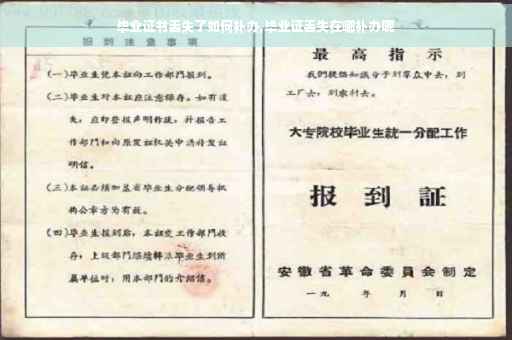 毕业证书丢失了如何补办,毕业证丢失在哪补办呢
报到注意事项
(一)毕业生凭本证向工作部门报到。
(二)毕业生对本证应注意保存。如有遗
失,应即登报声明作废,并报告工
作部门和向原发证机关申请补发证
明信。
(三)本证必须加盖省毕业生分配领导机
构公章方为有效。
(四)毕业生报到后,本证交工作部门收
存;上级部门
毕业生到所
属单位时,用本部门的介绍信。
最高指示
我们提倡知识分子到群众中去,到
工厂去,到农村去。
大专院校毕业生統一分配工作
报到証
安徽省革命委員会制定
一九 年 月 日